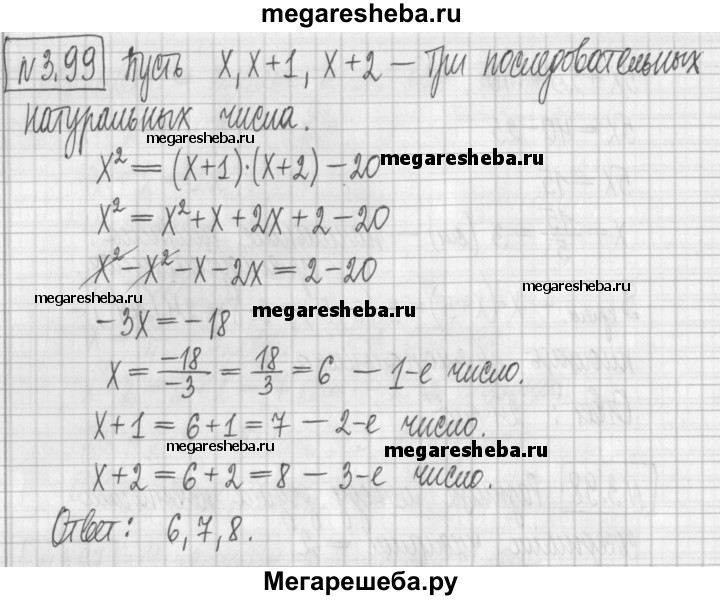 megaresheba.ru
№3.99 Пусть x, x+1, x+2 – три последовательных
натуральных числа.
megaresheba.ru
x² = (x+1)·(x+2) – 20
megaresheba.ru
x² = x² + x + 2x + 2 – 20
x² – x² – x – 2x = 2 – 20
megaresheba.ru
megaresheba.ru
megaresheba.ru
–3x = –18
x = –18/–3 = 18/3 = 6 – 1-е число.
x+1 = 6+1 = 7 – 2-е число.
megaresheba.ru
megaresheba.ru
x+2 = 6+2 = 8 – 3-е число.
Ответ: 6, 7, 8.
Мегарешеба.ру